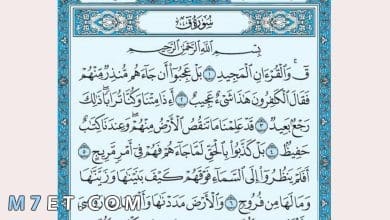 سُورَةُ قٓ
بِسْمِ اللَّهِ الرَّحْمَٰنِ الرَّحِيمِ
قٓ ۚ وَالْقُرْءَانِ الْمَجِيدِ ١ بَلْ عَجِبُوا أَن جَاءَهُم مُّنذِرٌ مِّنْهُمْ
فَقَالَ الْكَٰفِرُونَ هَٰذَا شَىْءٌ عَجِيبٌ ٢ أَءِذَا مِتْنَا وَكُنَّا تُرَابًا ۖ ذَٰلِكَ
رَجْعٌ بَعِيدٌ ٣ قَدْ عَلِمْنَا مَا تَنقُصُ الْأَرْضُ مِنْهُمْ ۖ وَعِندَنَا كِتَٰبٌ
حَفِيظٌ ٤ بَلْ كَذَّبُوا بِالْحَقِّ لَمَّا جَاءَهُمْ فَهُمْ فِى أَمْرٍ مَّرِيجٍ ٥
أَفَلَمْ يَنظُرُوا إِلَى السَّمَاءِ فَوْقَهُمْ كَيْفَ بَنَيْنَٰهَا وَزَيَّنَّٰهَا
وَمَا لَهَا مِن فُرُوجٍ ٦ وَالْأَرْضَ مَدَدْنَٰهَا وَأَلْقَيْنَا
M7ET.COM